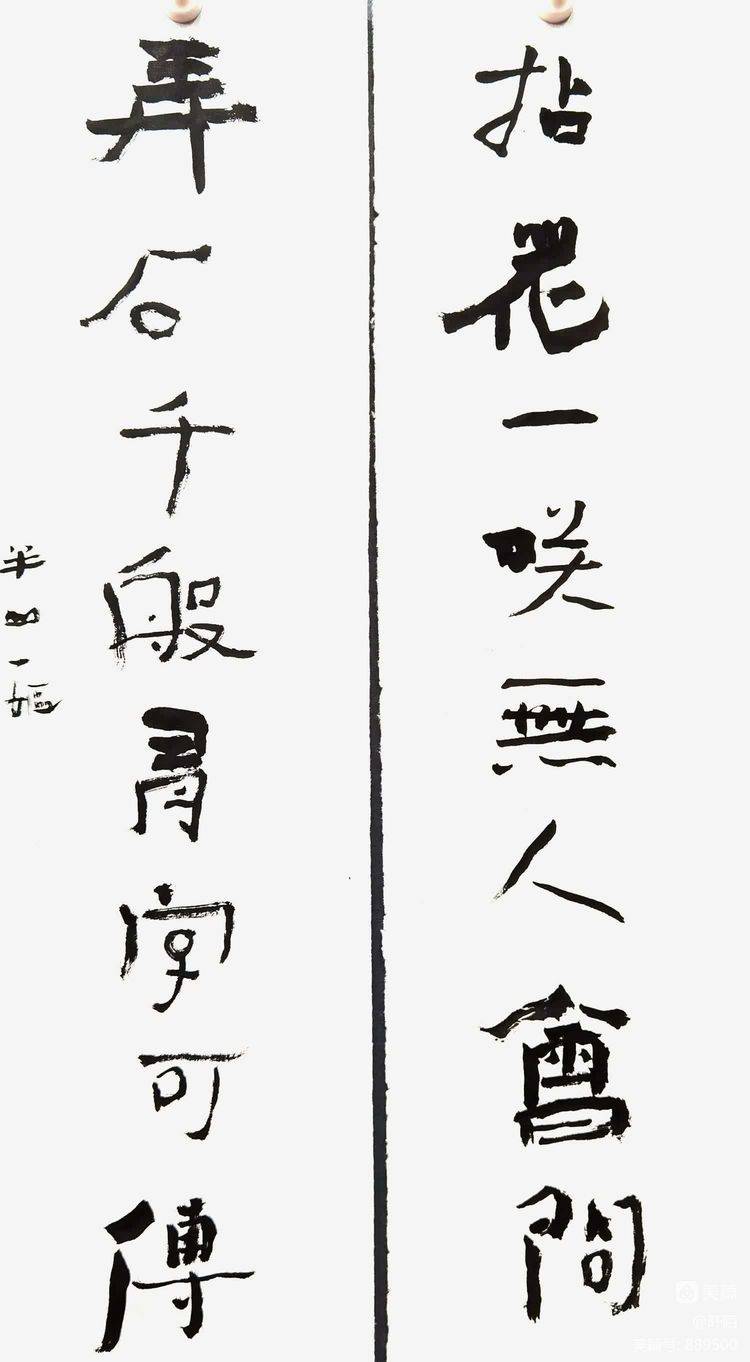 拈花一咲無人會問
弄石千般有字可傳
半山一
美篇
美篇号: 889500